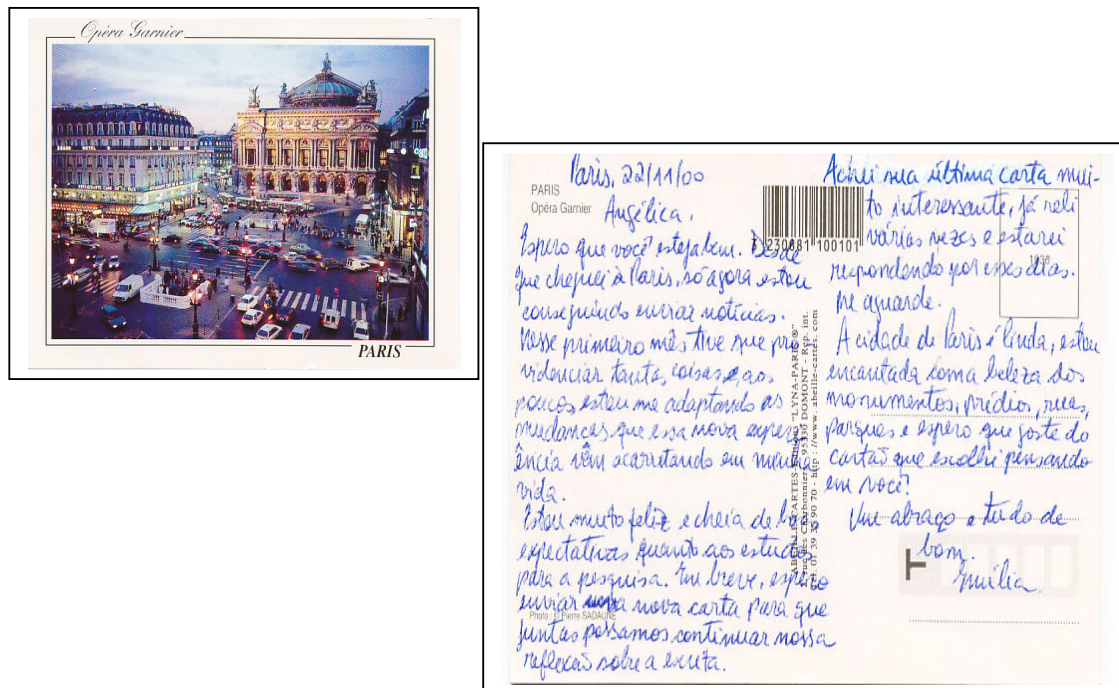 Opéra Garnier
GRAND HOTEL
PARIS
PARIS
Opéra Garnier
Paris, 22/11/00
Angélica,
Espero que você esteja bem. Desde
que cheguei à Paris, só agora estou
conseguindo enviar notícias.
Nesse primeiro mês tive que pro
videnciar tantas coisas e, aos
poucos, estou me adaptando as
mudanças que essa nova experi
ência vêm acarretando em minha
vida.
Estou muito feliz e cheia de boas
expectativas quanto aos estudos
para a pesquisa. Em breve, espero
enviar uma nova carta para que
juntas possamos continuar nossa
reflexão sobre a escrita.
Photo : © Pierre SADAUNE
230881 100101
ABEILLE-CARTES - Editions "LYNA-PARIS®"
rue des Charbonniers, 95330 DOMONT - Rép. int.
Tél. 01 39 35 90 70 - http://www.abeille-cartes.com
Achei sua última carta mui-
to interessante, já reli
várias vezes e estarei
respondendo por esses dias.
Me aguarde.
A cidade de Paris é linda, estou
encantada com a beleza dos
monumentos, prédios, ruas,
parques e espero que goste do
cartão que escolhi pensando
em você!
Um abraço e tudo de
bom.
Emília.